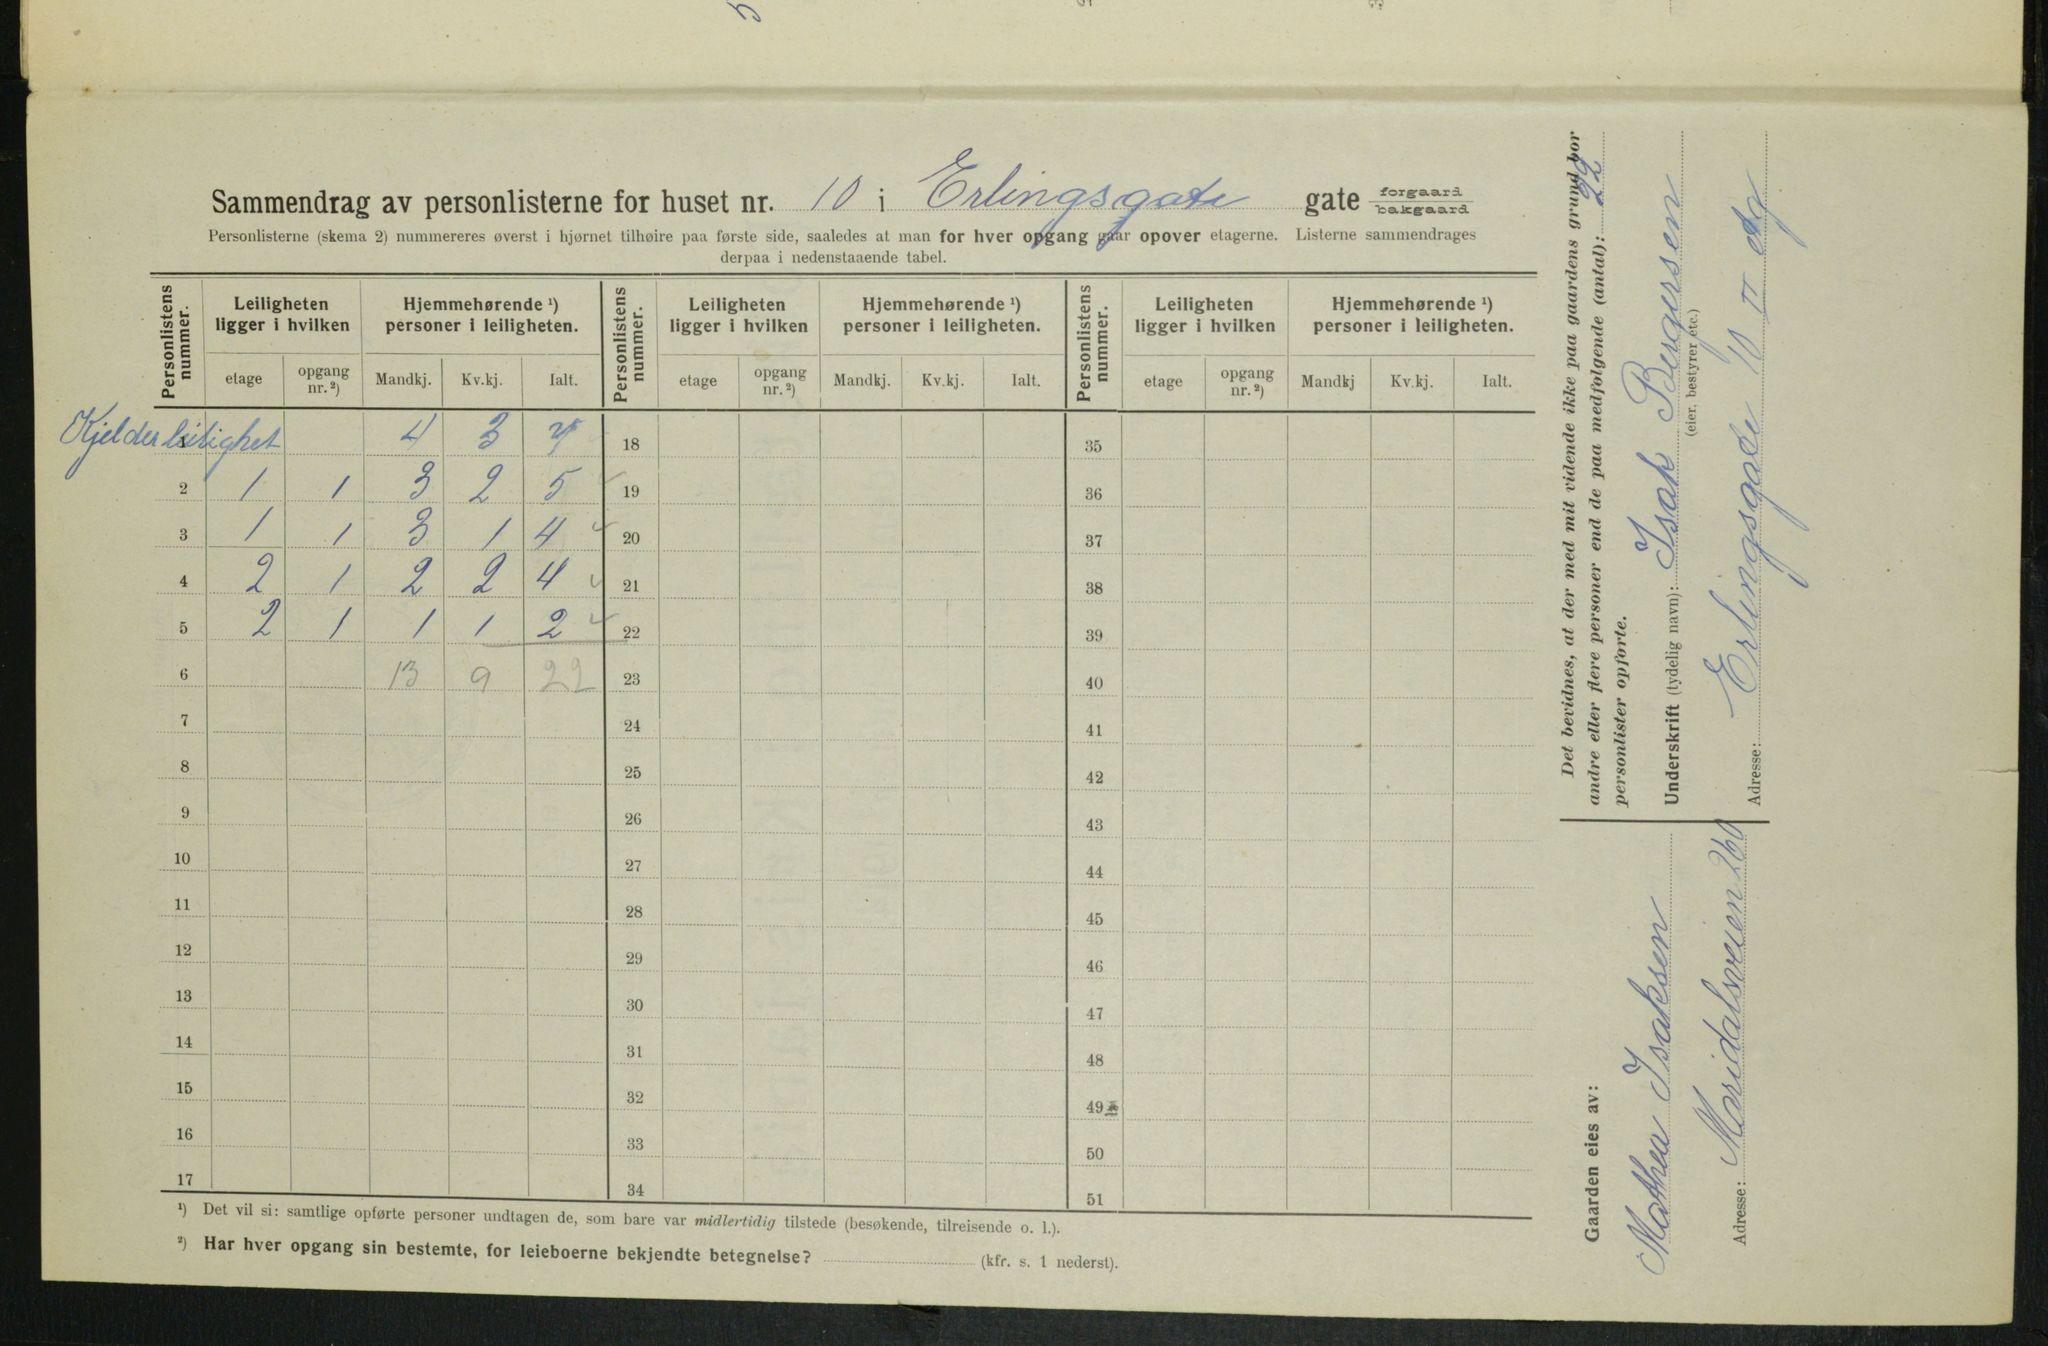 Sammendrag av personlisterne for huset nr. 10 i Erlingsgate gate forgaard bakgaard
Personlisterne (skema 2) nummereres øverst i hjørnet tilhøire paa første side, saaledes at man for hver opgang gaar opover etagerne. Listerne sammendrages
derpaa i nedenstaaende tabel.
Personlistens nummer. Leiligheten ligger i hvilken Hjemmehørende ¹) personer i leiligheten. Personlistens nummer. Leiligheten ligger i hvilken Hjemmehørende ¹) personer i leiligheten. Personlistens nummer. Leiligheten ligger i hvilken Hjemmehørende ¹) personer i leiligheten.
etage opgang nr. ²) Mandkj. Kv.kj. Ialt. etage opgang nr. ²) Mandkj. Kv.kj. Ialt. etage opgang nr. ²) Mandkj Kv.kj. Ialt.
1 Kjelderleilighet 4 3 7 18 35
2 1 1 3 2 5 19 36
3 1 1 3 1 4 20 37
4 2 1 2 2 4 21 38
5 2 1 1 1 2 22 39
6 13 9 22 23 40
7 24 41
8 25 42
9 26 43
10 27 44
11 28 45
12 29 46
13 30 47
14 31 48
15 32 49
16 33 50
17 34 51
¹) Det vil si: samtlige opførte personer undtagen de, som bare var midlertidig tilstede (besøkende, tilreisende o. l.).
²) Har hver opgang sin bestemte, for leieboerne bekjendte betegnelse? (kfr. s. 1 nederst).
Det bevidnes, at der med mit vidende ikke paa gaardens grund bor
andre eller flere personer end de paa medfølgende (antal): 22
personlister opførte.
Underskrift (tydelig navn): Isak Bergersen
(eier, bestyrer etc.)
Adresse: Erlingsgade 10 II etg
Gaarden eies av:
Mathea Isaksen
Adresse: Maridalsveien 260